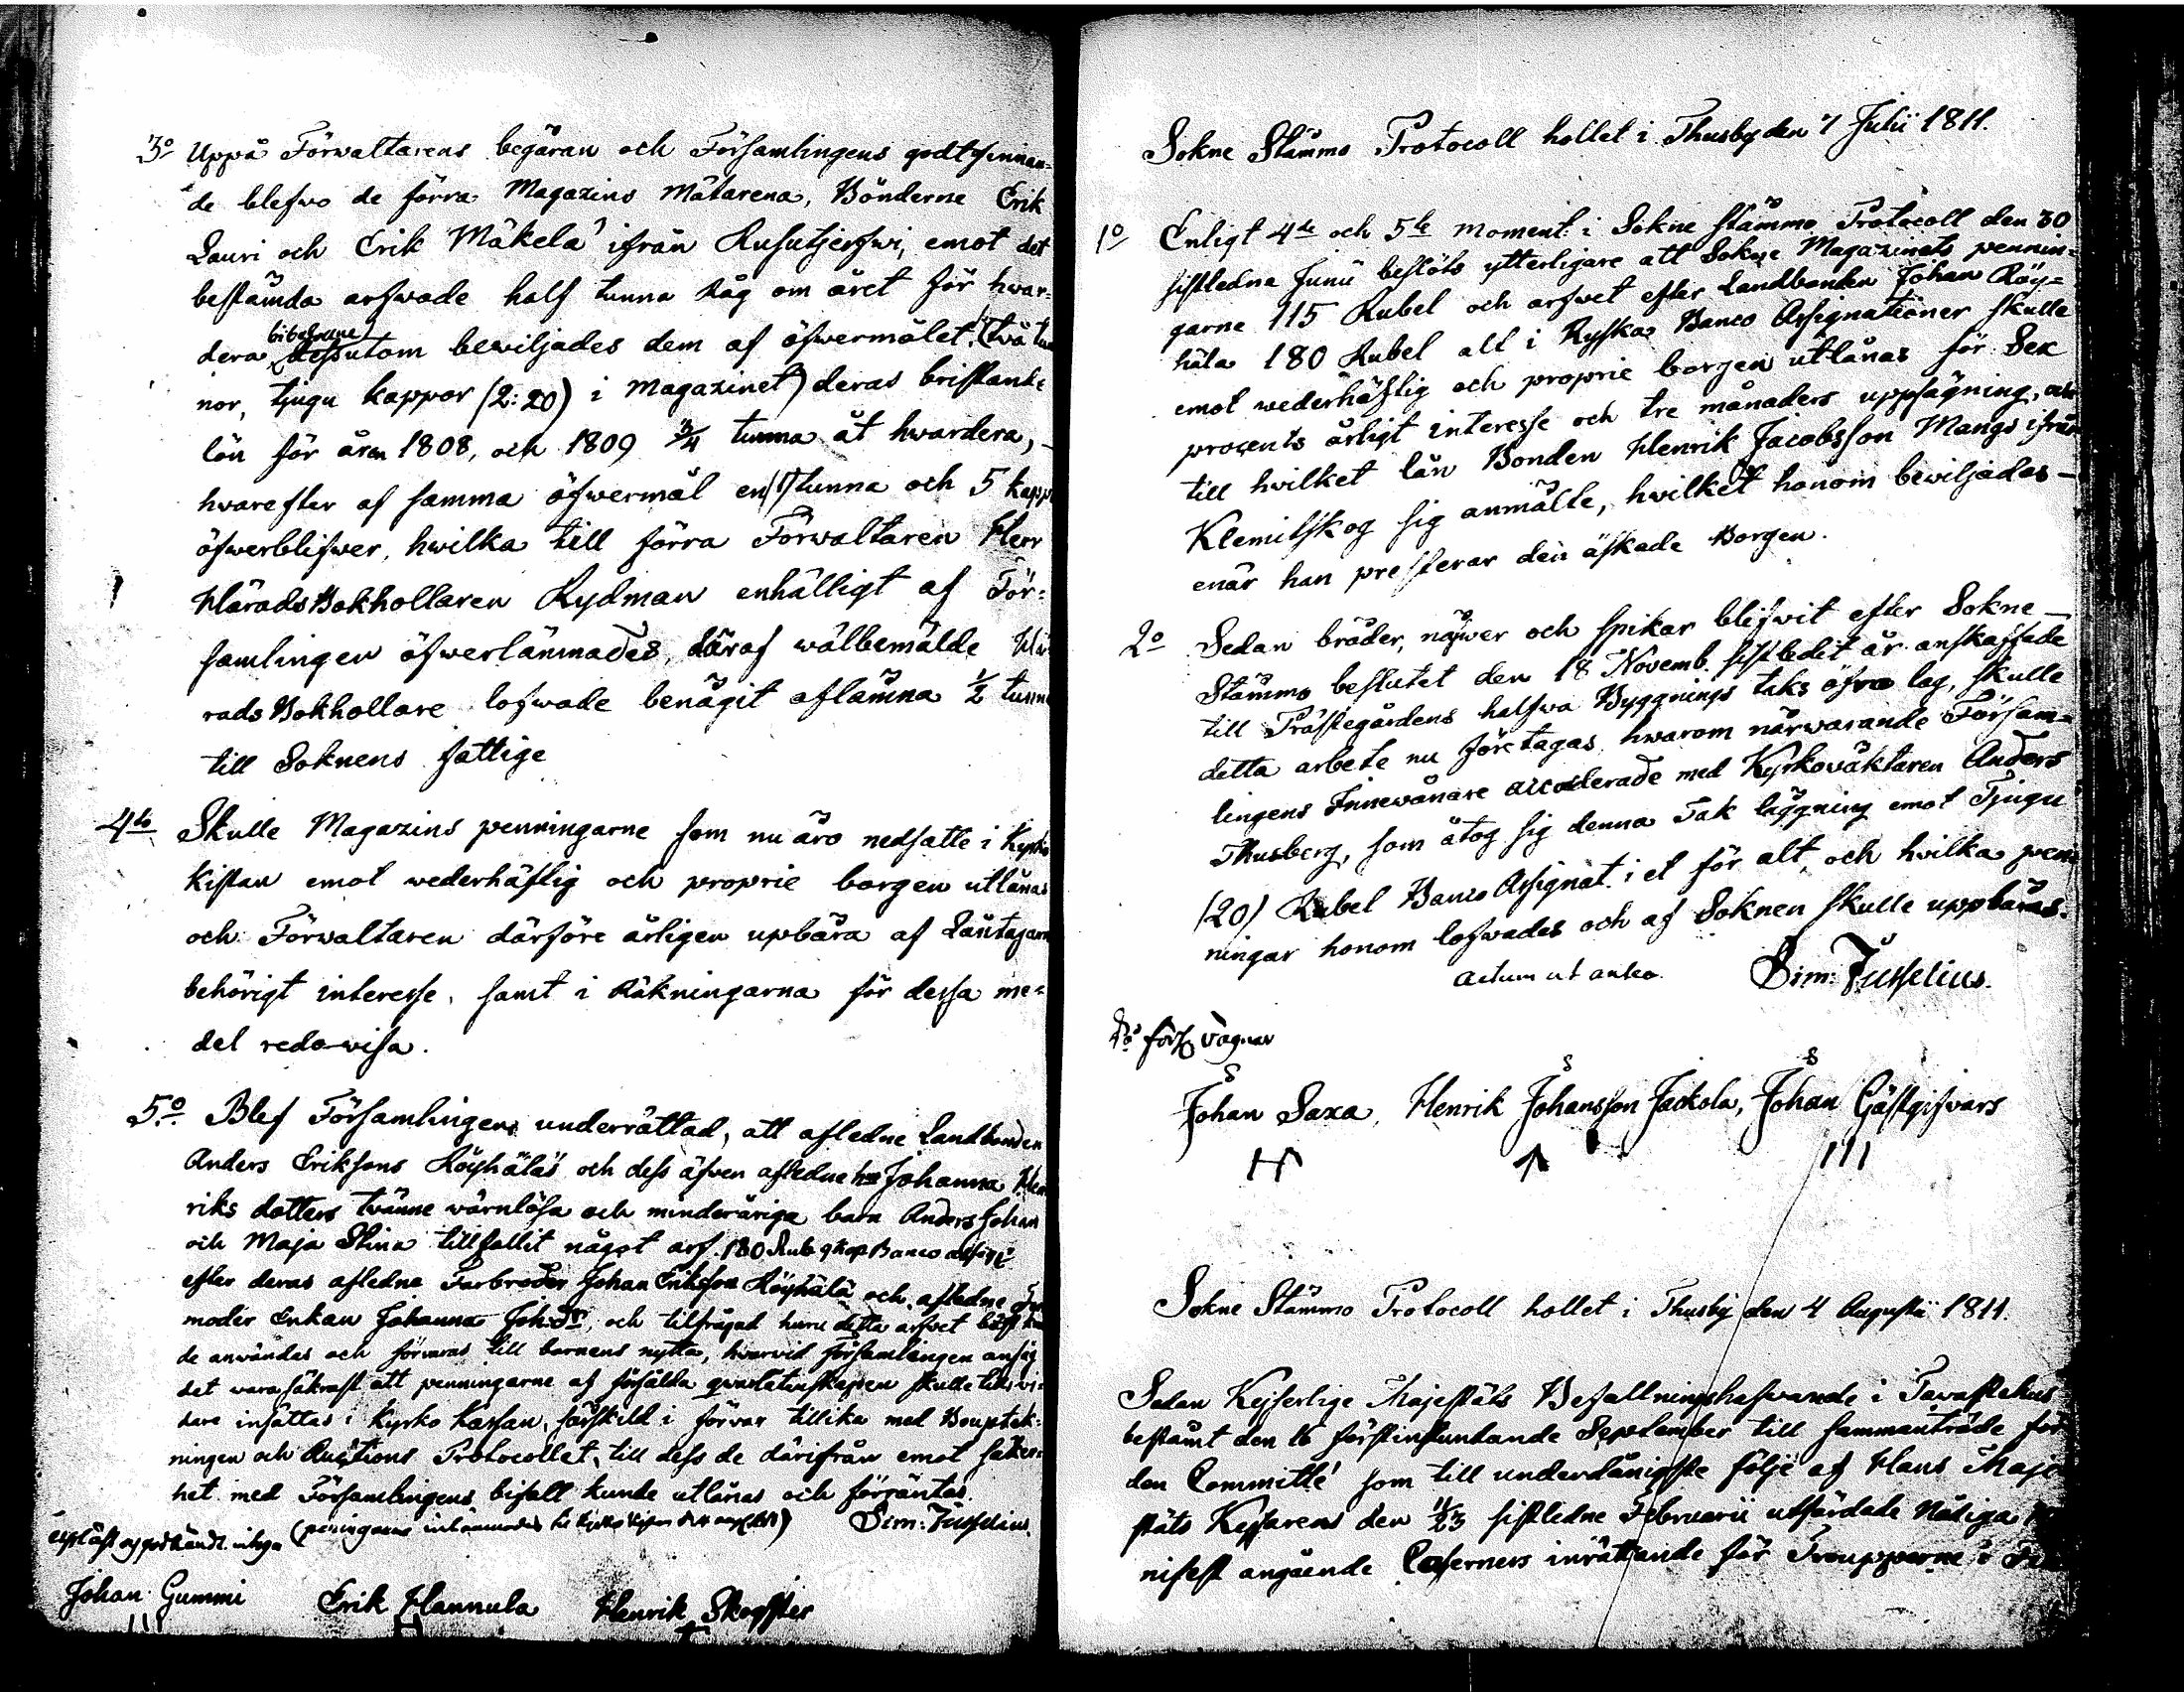 3o Uppå Förvaltarens begäran och Församlingens godtfinnan=
de blefvo de förra Magazins Mätarena, Bönderne Erik
Lauri och Erik Mäkelä ifrån Rusutjerfwi, emot det
bestämda arfwade half tunna Råg om året för hwar=
dera bibehåldne
dessutom bewiljades dem af öfwermålet (två tun
nor, tjugu kappor (2:20) i Magazinet) deras bristande
lön för åren 1808, och 1809 3/4 tunna åt hwardera,
hwarefter af samma öfwermål en (1) tunna och 5 kapp
öfwerblifwer, hwilka till förra Förwaltaren Herr
HäradsBokhollaren Rydman enhälligt af För=
samlingen öfwerlämnades, däraf wälbemälde Hä
radsBokhollare lofwade benägit aflämna 1/2 tunna
till Soknens fattige
4to Skulle Magazins penningarne som nu äro nedsatte i Kyrko
Kistan emot wederhäftig och proprie borgen utlånas
och Förwaltaren därföre årligen upbära af Låntagarn
behörigt interesse, samt i Räkningarna för dessa me=
del redowisa.
5o Blef Församlingen underrättad, att afledne Landbonden
Anders Eriksons Röyhälä och dess äfven afledne Johanna Hen
riks dotters tvänne wärnlösa och minderåriga barn Anders Johan
och Maja Stina tillfallit något arf 180 Rub 9 kop Banco assign:
efter deras afledne Farbroder Johan Eriksson Röyhälä och afledne Far
moder Enkan Johanna Joh:dr, och tilfrågad huru detta arfvet bäst kun
de användas och förvaras till barnens nytta, hvarvid församlingen ansåg
det wara säkrast att penningarne af försålda qvarlåtenskapen skulle tils wi=
dare insättas i Kyrko Kassan, särskild i förvar tillika med Bouptek=
ningen och Auctions Protocollet, till dess de därifrån emot säker=
het med Församlingens bifall kunde utlånas och förräntas.
(penningarne inlämnades Sim: Jusselius.
uplåst och godkändt intyga
Johan Gummi Erik Hannula Henrik Skogster
Sokne Stämmo Protocoll hollet i Thusby den 7 Julii 1811.
1o Enligt 4de och 5te moment i Sokne stämmo Protocoll den 30
sistledne Junii beslöts ytterligare att Sokne Magazinets pennin=
garne 115 Rubel och arfvet efter Landbonden Johan Röy=
hälä 180 Rubel all i Ryska Banco Assignationer skulle
emot wederhäftig och proprie borgen utlånas för Sex
procents årligt interesse och tre månaders uppsägning,
till hvilket lån Bonden Henrik Jacobsson Mangs ifrån
Klemitskog sig anmälte, hvilket honom bewiljades
enär han presterar den äskade Borgen.
2o Sedan bräder, näfwer och spikar blifvit efter Sokne
Stämmo beslutet den 18 Novemb. sistledit år anskaffade
till Prästegårdens halfwa Byggnings taks öfra lag, skulle
detta arbete nu företagas, hwarom närwarande Försam=
lingens Innevånare accorderade med Kyrkoväktaren Anders
Thusberg, som åtog sig denna Tak läggning emot Tjugu
(20) Rubel Banco Assignat. i et för alt, och hvilka pen=
ningar honom lofwades och af Soknen skulle uppbäras.
Actum ut antea. Sim: Jusselius.
Johan Saxa, Henrik Johansson Jackola, Johan Gästgifvars
Sokne Stämmo Protocoll hollet i Thusby den 4 Augusti 1811.
Sedan Kejserlige Majestäts Befallningshafwande i Tavastehus
bestämt den 16 förstinstundande September till sammanträde för
den Committé som till underdånigste följe af Hans Maje
stäts Kejsarens den 11/23 sistledne Februarii utfärdade Nådiga Ma
nifest angående Caserners inrättande för Troupperne i